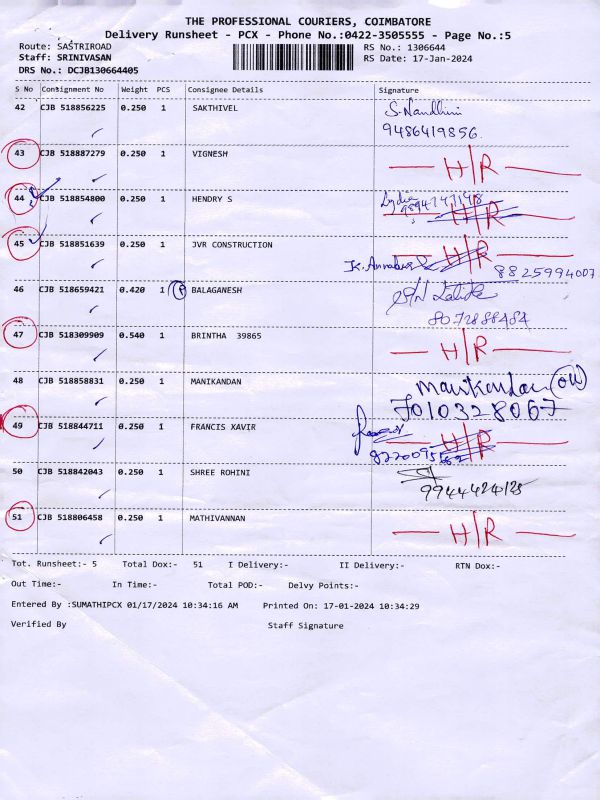 THE PROFESSIONAL COURIERS, COIMBATORE
Delivery Runsheet - PCX - Phone No.:0422-3505555 - Page No.:5
Route: SASTRIROAD RS No.: 1306644
Staff: SRINIVASAN RS Date: 17-Jan-2024
DRS No.: DCJB130664405
S No Consignment No Weight PCS Consignee Details Signature
42 CJB 518856225 0.250 1 SAKTHIVEL S. Nandhini
9486419856.
43 CJB 518887279 0.250 1 VIGNESH H/R
44 CJB 518854800 0.250 1 HENDRY S Lydia H/R
45 CJB 518851639 0.250 1 JVR CONSTRUCTION H/R
8825994007
46 CJB 518659421 0.420 1 P BALAGANESH
8072888484
47 CJB 518309909 0.540 1 BRINTHA 39865 H/R
48 CJB 518858831 0.250 1 MANIKANDAN Manikandan
7010328067
49 CJB 518844711 0.250 1 FRANCIS XAVIR H/R
50 CJB 518842043 0.250 1 SHREE ROHINI
9944424125
51 CJB 518806458 0.250 1 MATHIVANNAN H/R
Tot. Runsheet:- 5 Total Dox:- 51 I Delivery:- II Delivery:- RTN Dox:-
Out Time:- In Time:- Total POD:- Delvy Points:-
Entered By :SUMATHIPCX 01/17/2024 10:34:16 AM Printed On: 17-01-2024 10:34:29
Verified By Staff Signature